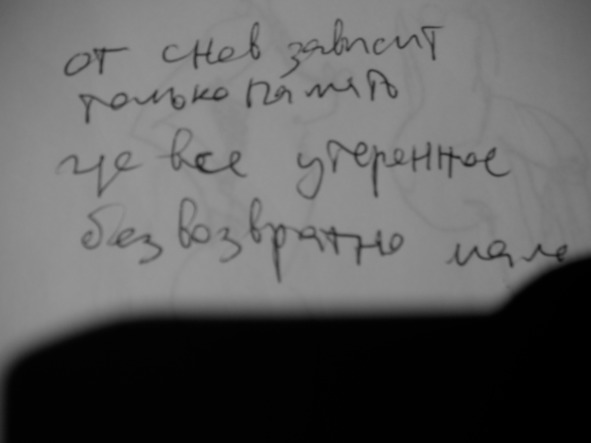 от снов зависит
только память
где все утеренное
безвозвратно